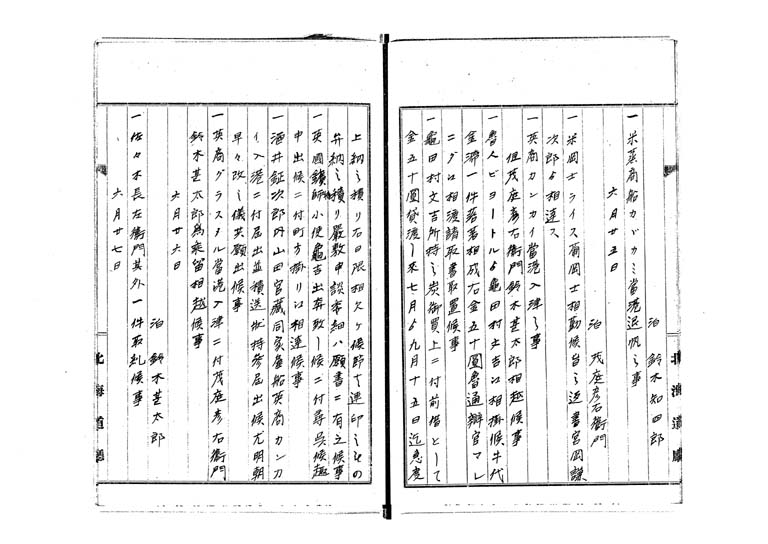 一 米蒸商船カガカミ當港退帆之事
泊 鈴木知四郎
六月廿五日
泊 茂庭彦右衞門
一 米岡士ライス爾岡士相勤候旨之返書宮岡謙
次郎ゟ相達ス
一 英商カンカイ當港入津之事
但茂庭彦右衞門鈴木甚太郎相越候事
一 魯人ピヨートルゟ亀田村文吉江相掛候牛代
金滞一件落着相成右金五十圓魯通辯官マレ
ニグロ相渡請取書取置候事
一 亀田村文吉所持之炭御買上ニ付前借として
金五十圓貸渡し来七月ゟ九月十五日迄急度
上納之積り右日限相欠ケ候節ハ連印之もの
弁納之積り嚴敷申談委細ハ願書ニ有之候事
一 英國鑛師小使亀吉出奔致し候ニ付尋呉候趣
申出候ニ付町方掛り江相達候事
一 酒井鉦次郎内山田官藏同家雇船英商カンカ
イ入港ニ付届出並積送状持参届出候尤明朝
早々改之儀英願出候事
一 英商グラスタル當港入津ニ付茂庭彦右衞門
鈴木甚太郎為乗留相越候事
六月廿六日
泊 鈴木甚太郎
一 佐々木長左衞門其外一件取糺候事
六月廿七日
北海道廳
北海道廳